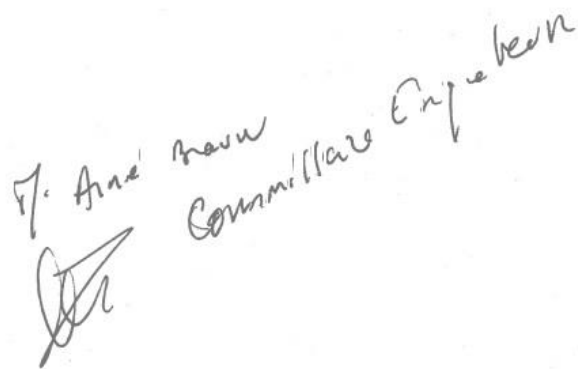 M. Aimé Braun
Commissaire Enquêteur